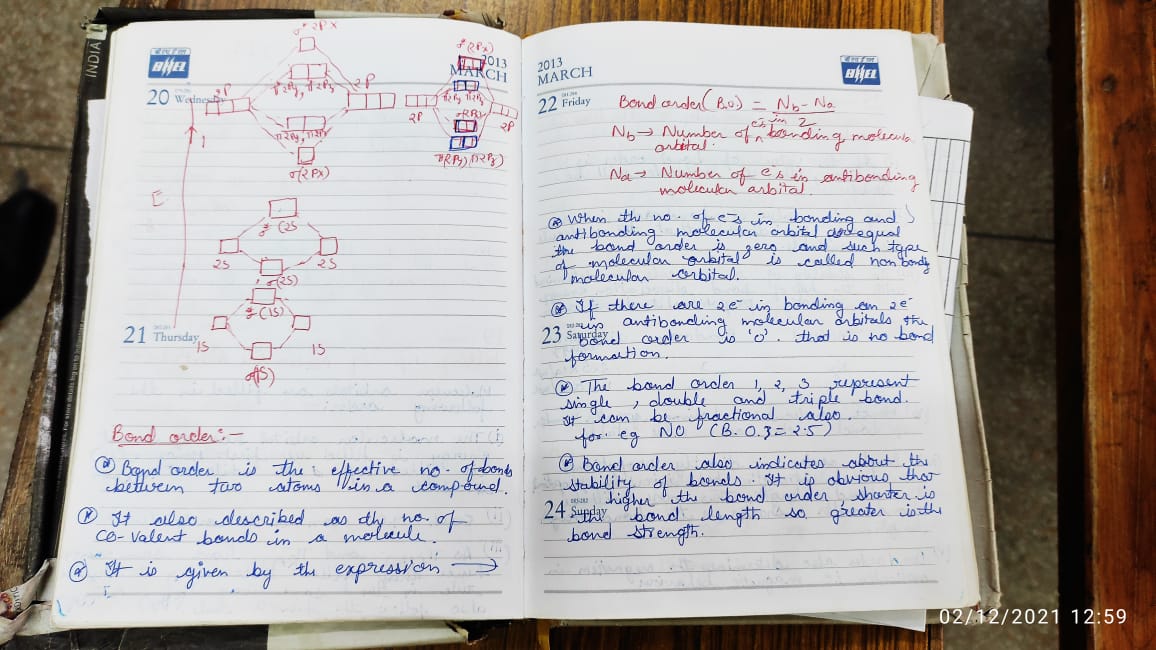 INDIA
BHEL
2013
MARCH
20 Wednesday
σ* 2Px
π 2Py, π 2Pz
2P
2P
π 2Py, π 2Pz
σ(2Px)
1
E
σ*(2Px)
2P
2P
σ(2Px)
π(2Py),π(2Pz)
σ* (2S
2S
2S
σ(2S)
σ*(1S)
21 Thursday
1S
1S
σ(1S)
Bond order:-
Bond order is the effective no. of bonds
between two atoms in a compound.
It also described as the no. of
co-valent bonds in a molecule.
It is given by the expression →
2013
MARCH
BHEL
22 Friday
Bond order (B.O) = Nb - Na
2
Nb → Number of e⁻s in bonding molecular
orbital.
Na → Number of e⁻s in antibonding
molecular orbital.
When the no. of e⁻s in bonding and
antibonding molecular orbital are equal
the bond order is zero and such type
of molecular orbital is called non bondg
molecular orbital.
If there are 2e⁻ in bonding an 2e⁻
in antibonding molecular orbitals the
23 Saturday
bond order is '0'. that is no bond
formation.
The bond order 1, 2, 3 represent
single, double and triple bond.
It can be fractional also.
for eg NO (B.O.3=2.5)
Bond order also indicates about the
stability of bonds. It is obvious that
higher the bond order shorter is
24 Sunday
the bond length so greater is the
bond strength.
02/12/2021 12:59